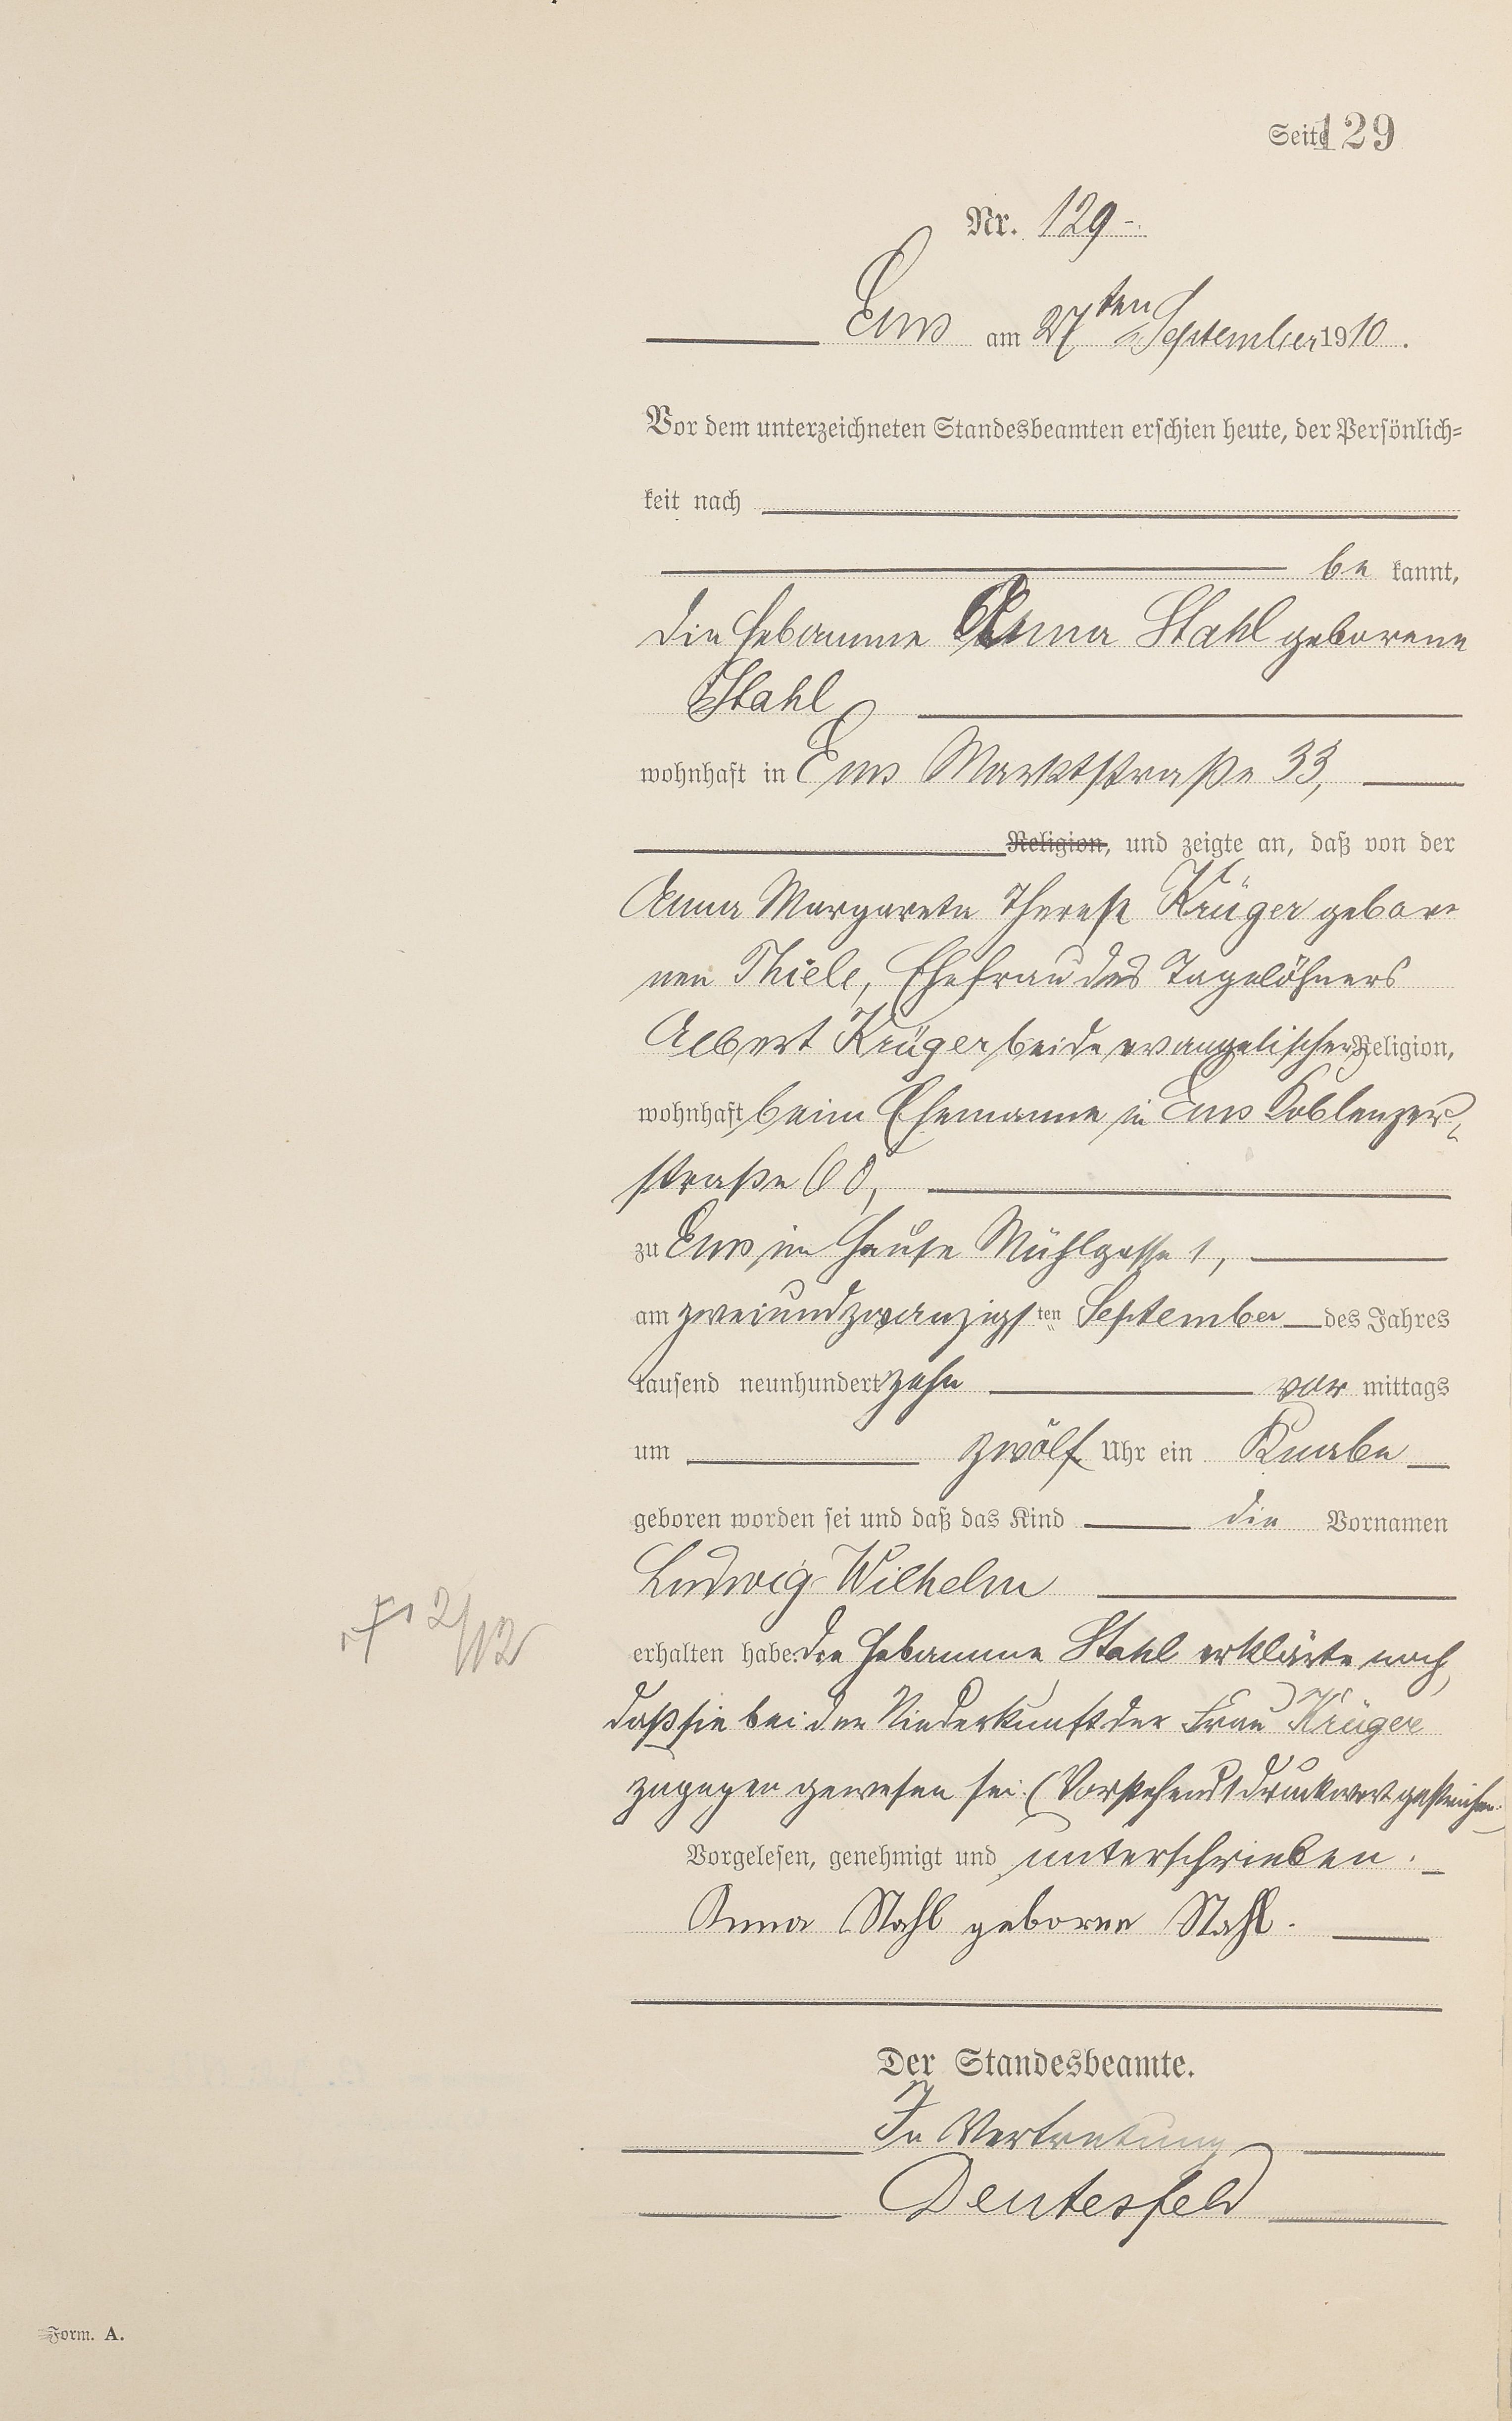 Seite 129
Nr. 129-.
Ems am 27ten September 1910.
Vor dem unterzeichneten Standesbeamten erschien heute, der Persönlich=
keit nach
be kannt,
die Hebamme Anna Stahl geborene
Stahl
wohnhaft in Ems Marktstraße 33,
Religion, und zeigte an, daß von der
Anna Margarete Therese Krüger gebore
nen Thiele, Ehefrau des Tagelöhners
Albert Krüger beide evangelischer Religion,
wohnhaft beim Ehemanne in Ems Koblenzer
straße 60,
zu Ems im Hause Mühlgasse 1,
am zweiundzwanzigsten September des Jahres
tausend neunhundert zehn vor mittags
um zwölf Uhr ein Knabe
geboren worden sei und daß das Kind die Vornamen
Ludwig Wilhelm
erhalten habe. Die Hebamme Stahl erklärte noch,
daß sie bei der Niederkunft der Frau Krüger
zugegen gewesen sei. (Vorstehend 1 Druckwort gestrichen.)
Vorgelesen, genehmigt und unterschrieben.
Anna Stahl geborene Stahl.
Der Standesbeamte.
In Vertretung
Deutesfeld
2/12
Form. A.